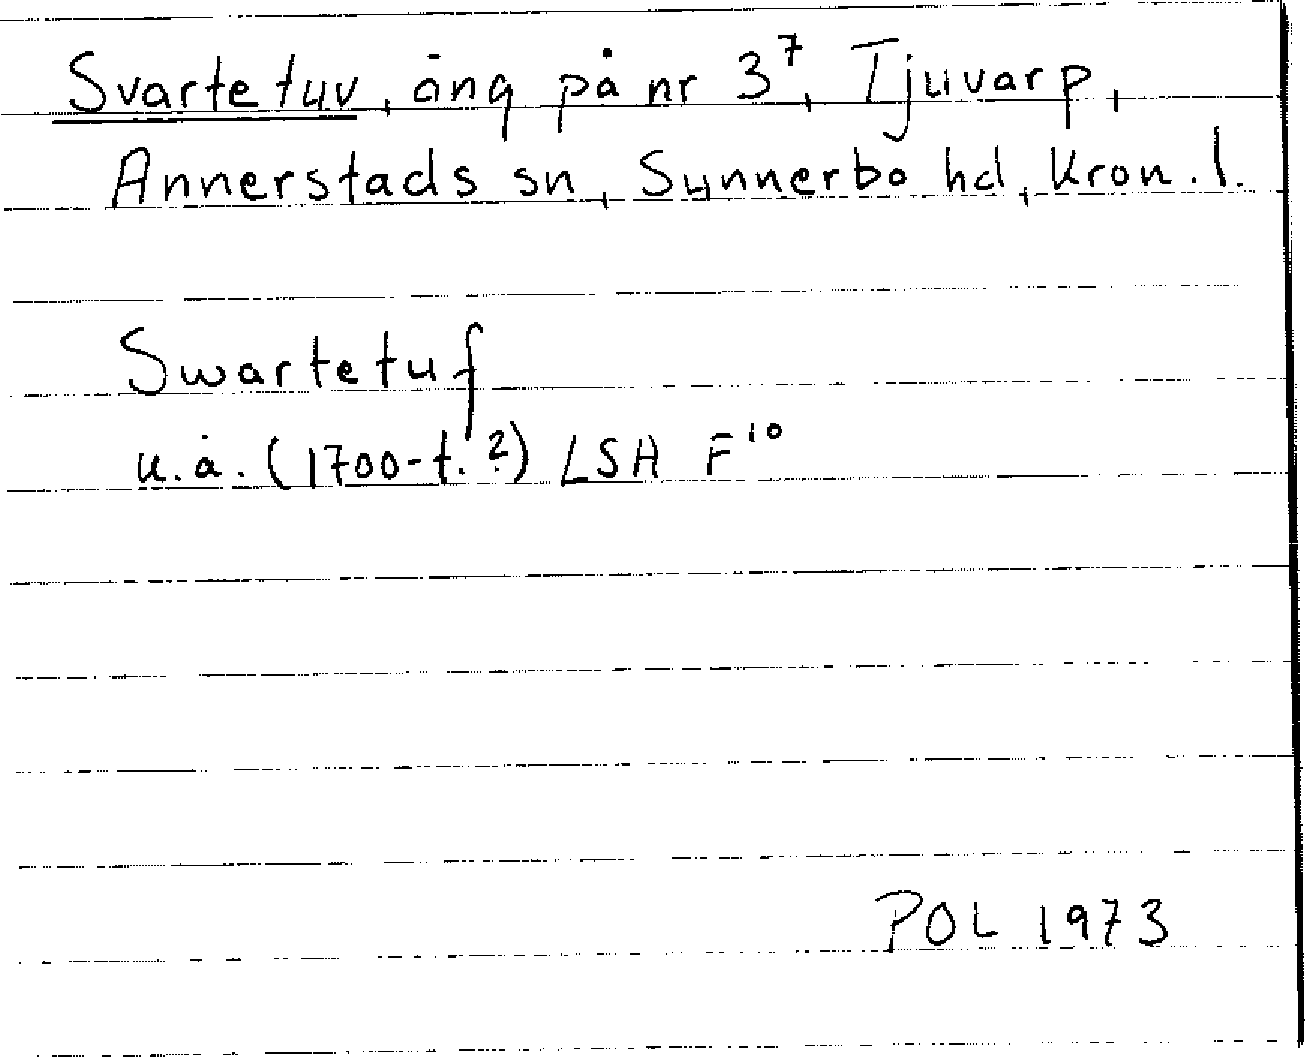 Svartetuv, äng på nr 3⁷, Tjuvarp,
Annerstads sn, Sunnerbo hd, Kron. l.
Swartetuf
u.å. (1700-t.?) LSA F¹⁰
POL 1973